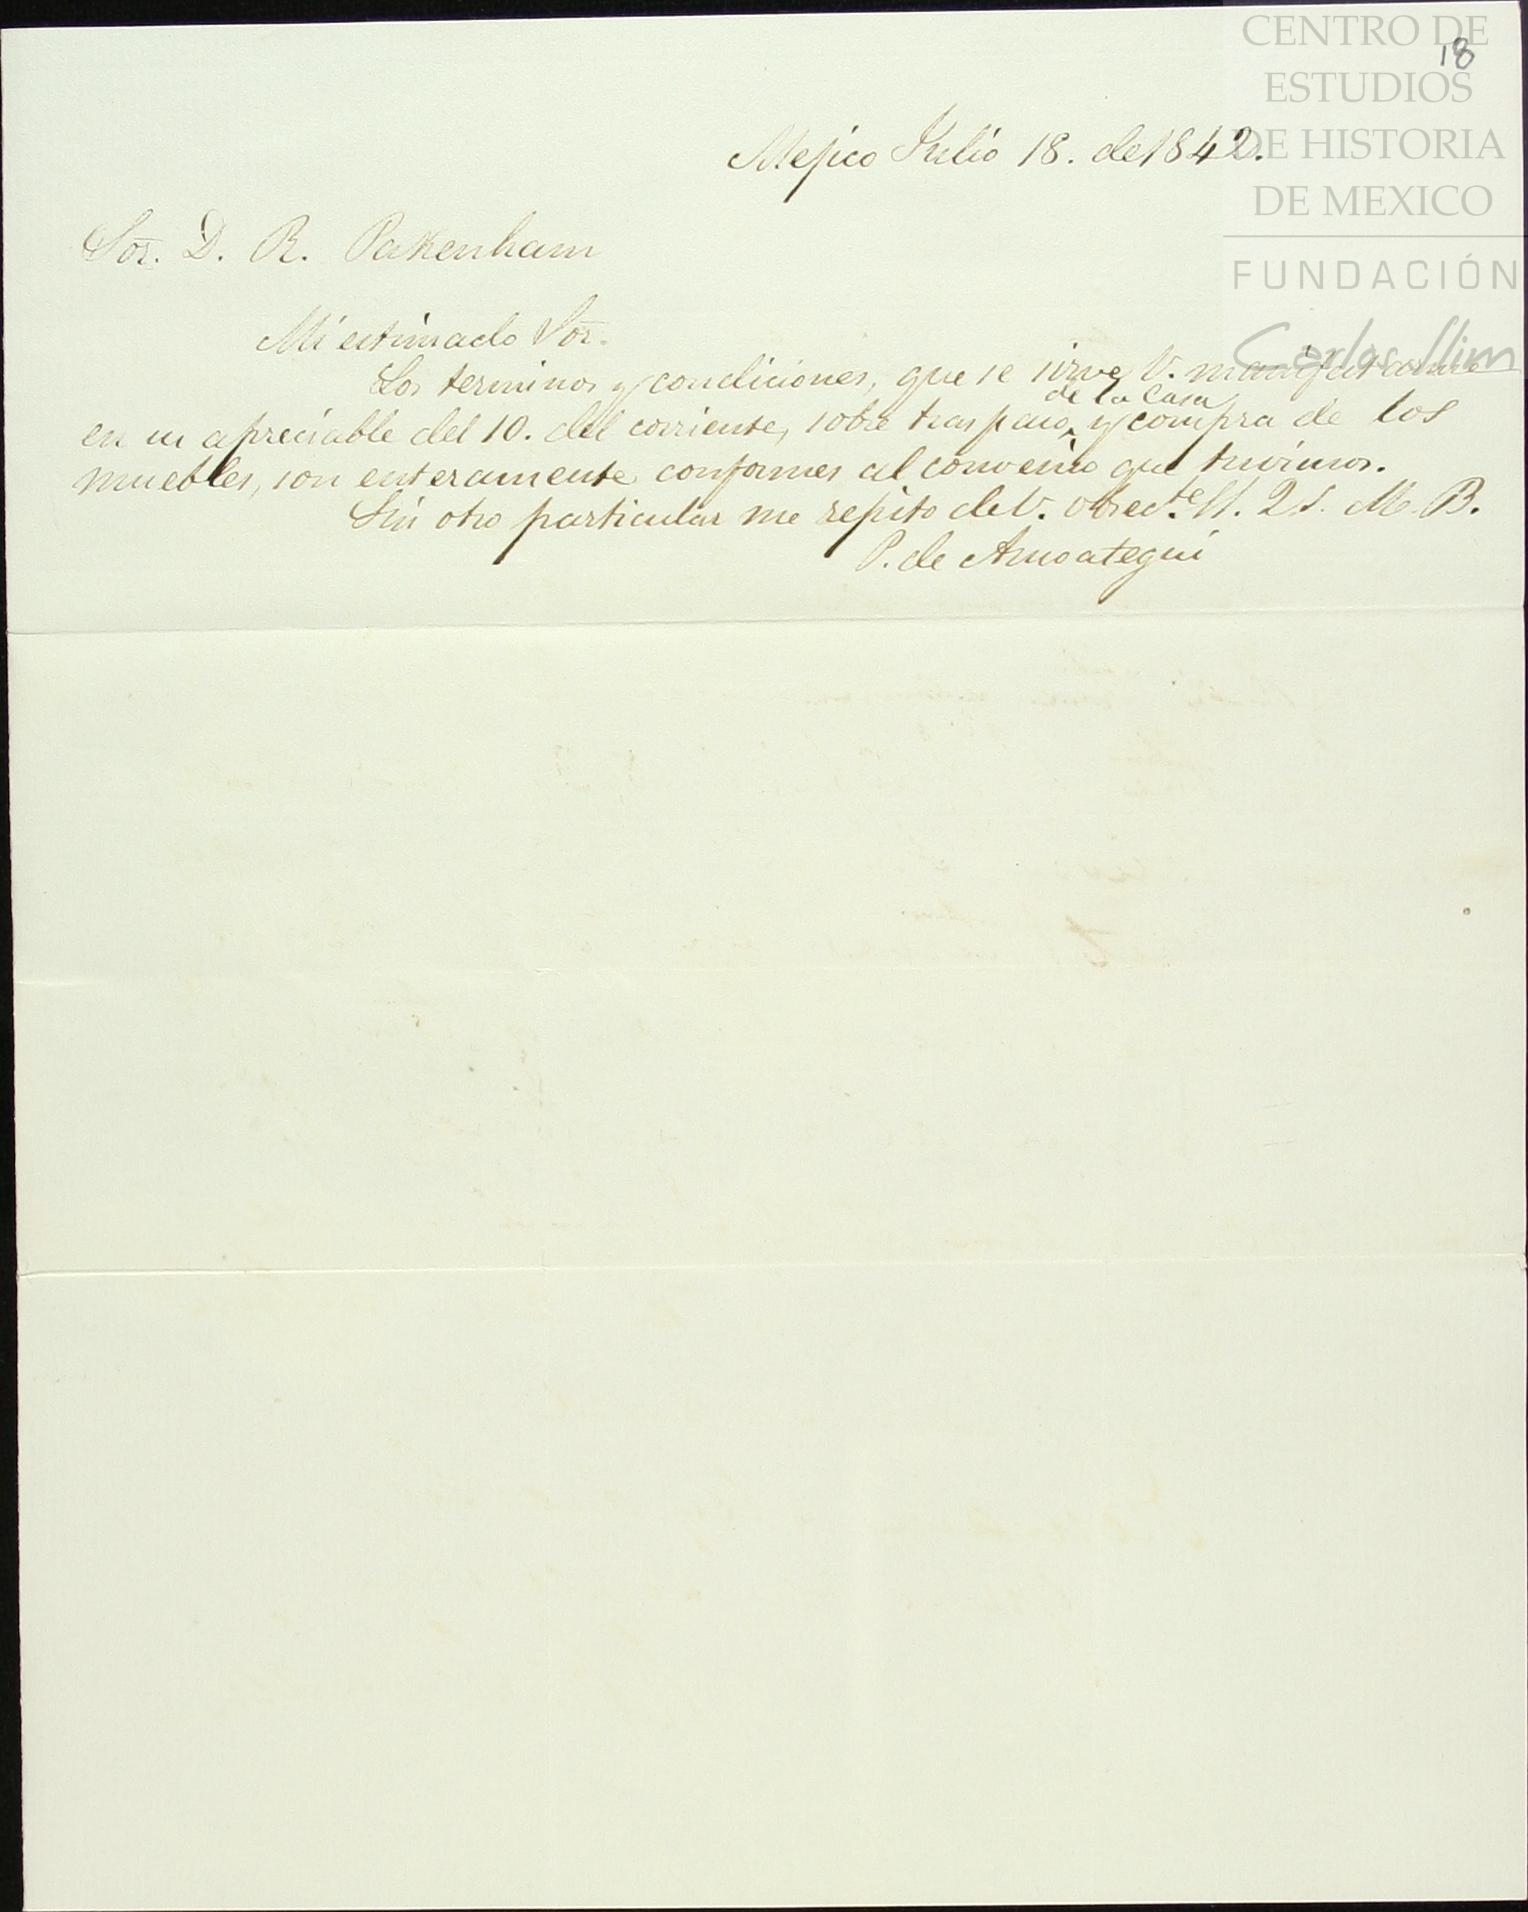 CENTRO DE
18
ESTUDIOS
DE HISTORIA
DE MEXICO
FUNDACIÓN
Carlos Slim
Mejico Julio 18. de 1842.
Sor. D. R. Pakenham
Mi estimado Sor.
Los terminos y condiciones, que se sirve V. manifestarme
de la Casa
en su apreciable del 10. del corriente, sobre traspaso ^ y compra de los
muebles, son enteramente conformes al convenio que tuvimos.
Sin otro particular me repito de V. obedte. S. Q S. M. B.
P. de Ansoategui